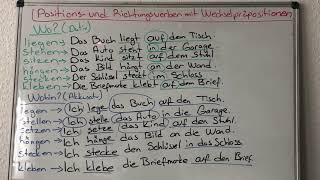 Positions- und Richtungsverben mit Wechselpräpositionen
Wo? (Dativ)
liegen → Das Buch liegt auf den Tisch.
stehen → Das Auto steht in der Garage.
sitzen → Das Kind sitzt auf dem Stuhl.
hängen → Das Bild hängt an der Wand.
stecken → Der Schlüssel steckt im Schloss.
kleben → Die Briefmarke klebt auf dem Brief.
Wohin? (Akkusativ)
legen → Ich lege das Buch auf den Tisch.
stellen → Ich stelle das Auto in die Garage.
setzen → Ich setze das Kind auf den Stuhl.
hängen → Ich hänge das Bild an die Wand.
stecken → Ich stecke den Schlüssel in das Schloss.
kleben → Ich klebe die Briefmarke auf den Brief.